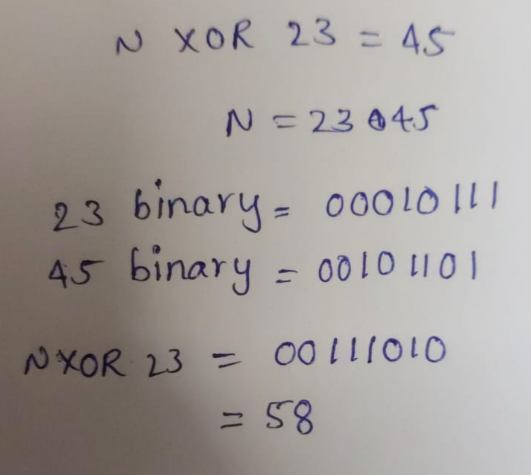 N XOR 23 = 45
N = 23 45
23 binary = 00010111
45 binary = 00101101
N XOR 23 = 00111010
= 58